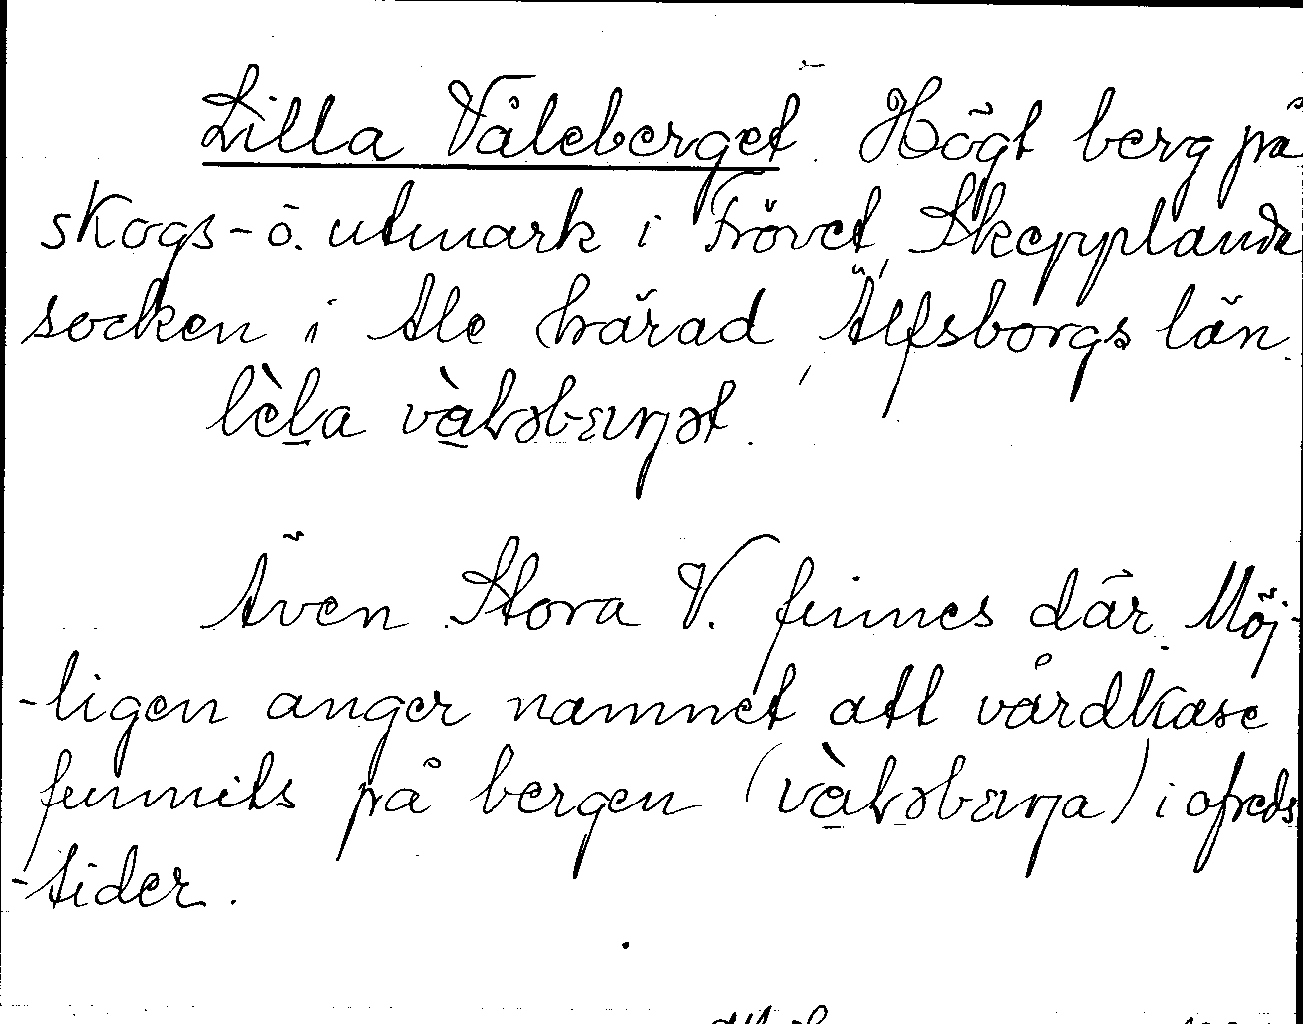 Lilla Våleberget. Högt berg på
skogs- o. utmark i Frövet, Skepplanda
socken i Ale härad, Älfsborgs län.
lèla
Även Stora V. finnes där. Möj-
-ligen anger namnet att vårdkase
funnits på bergen ( ) i ofreds
-tider.